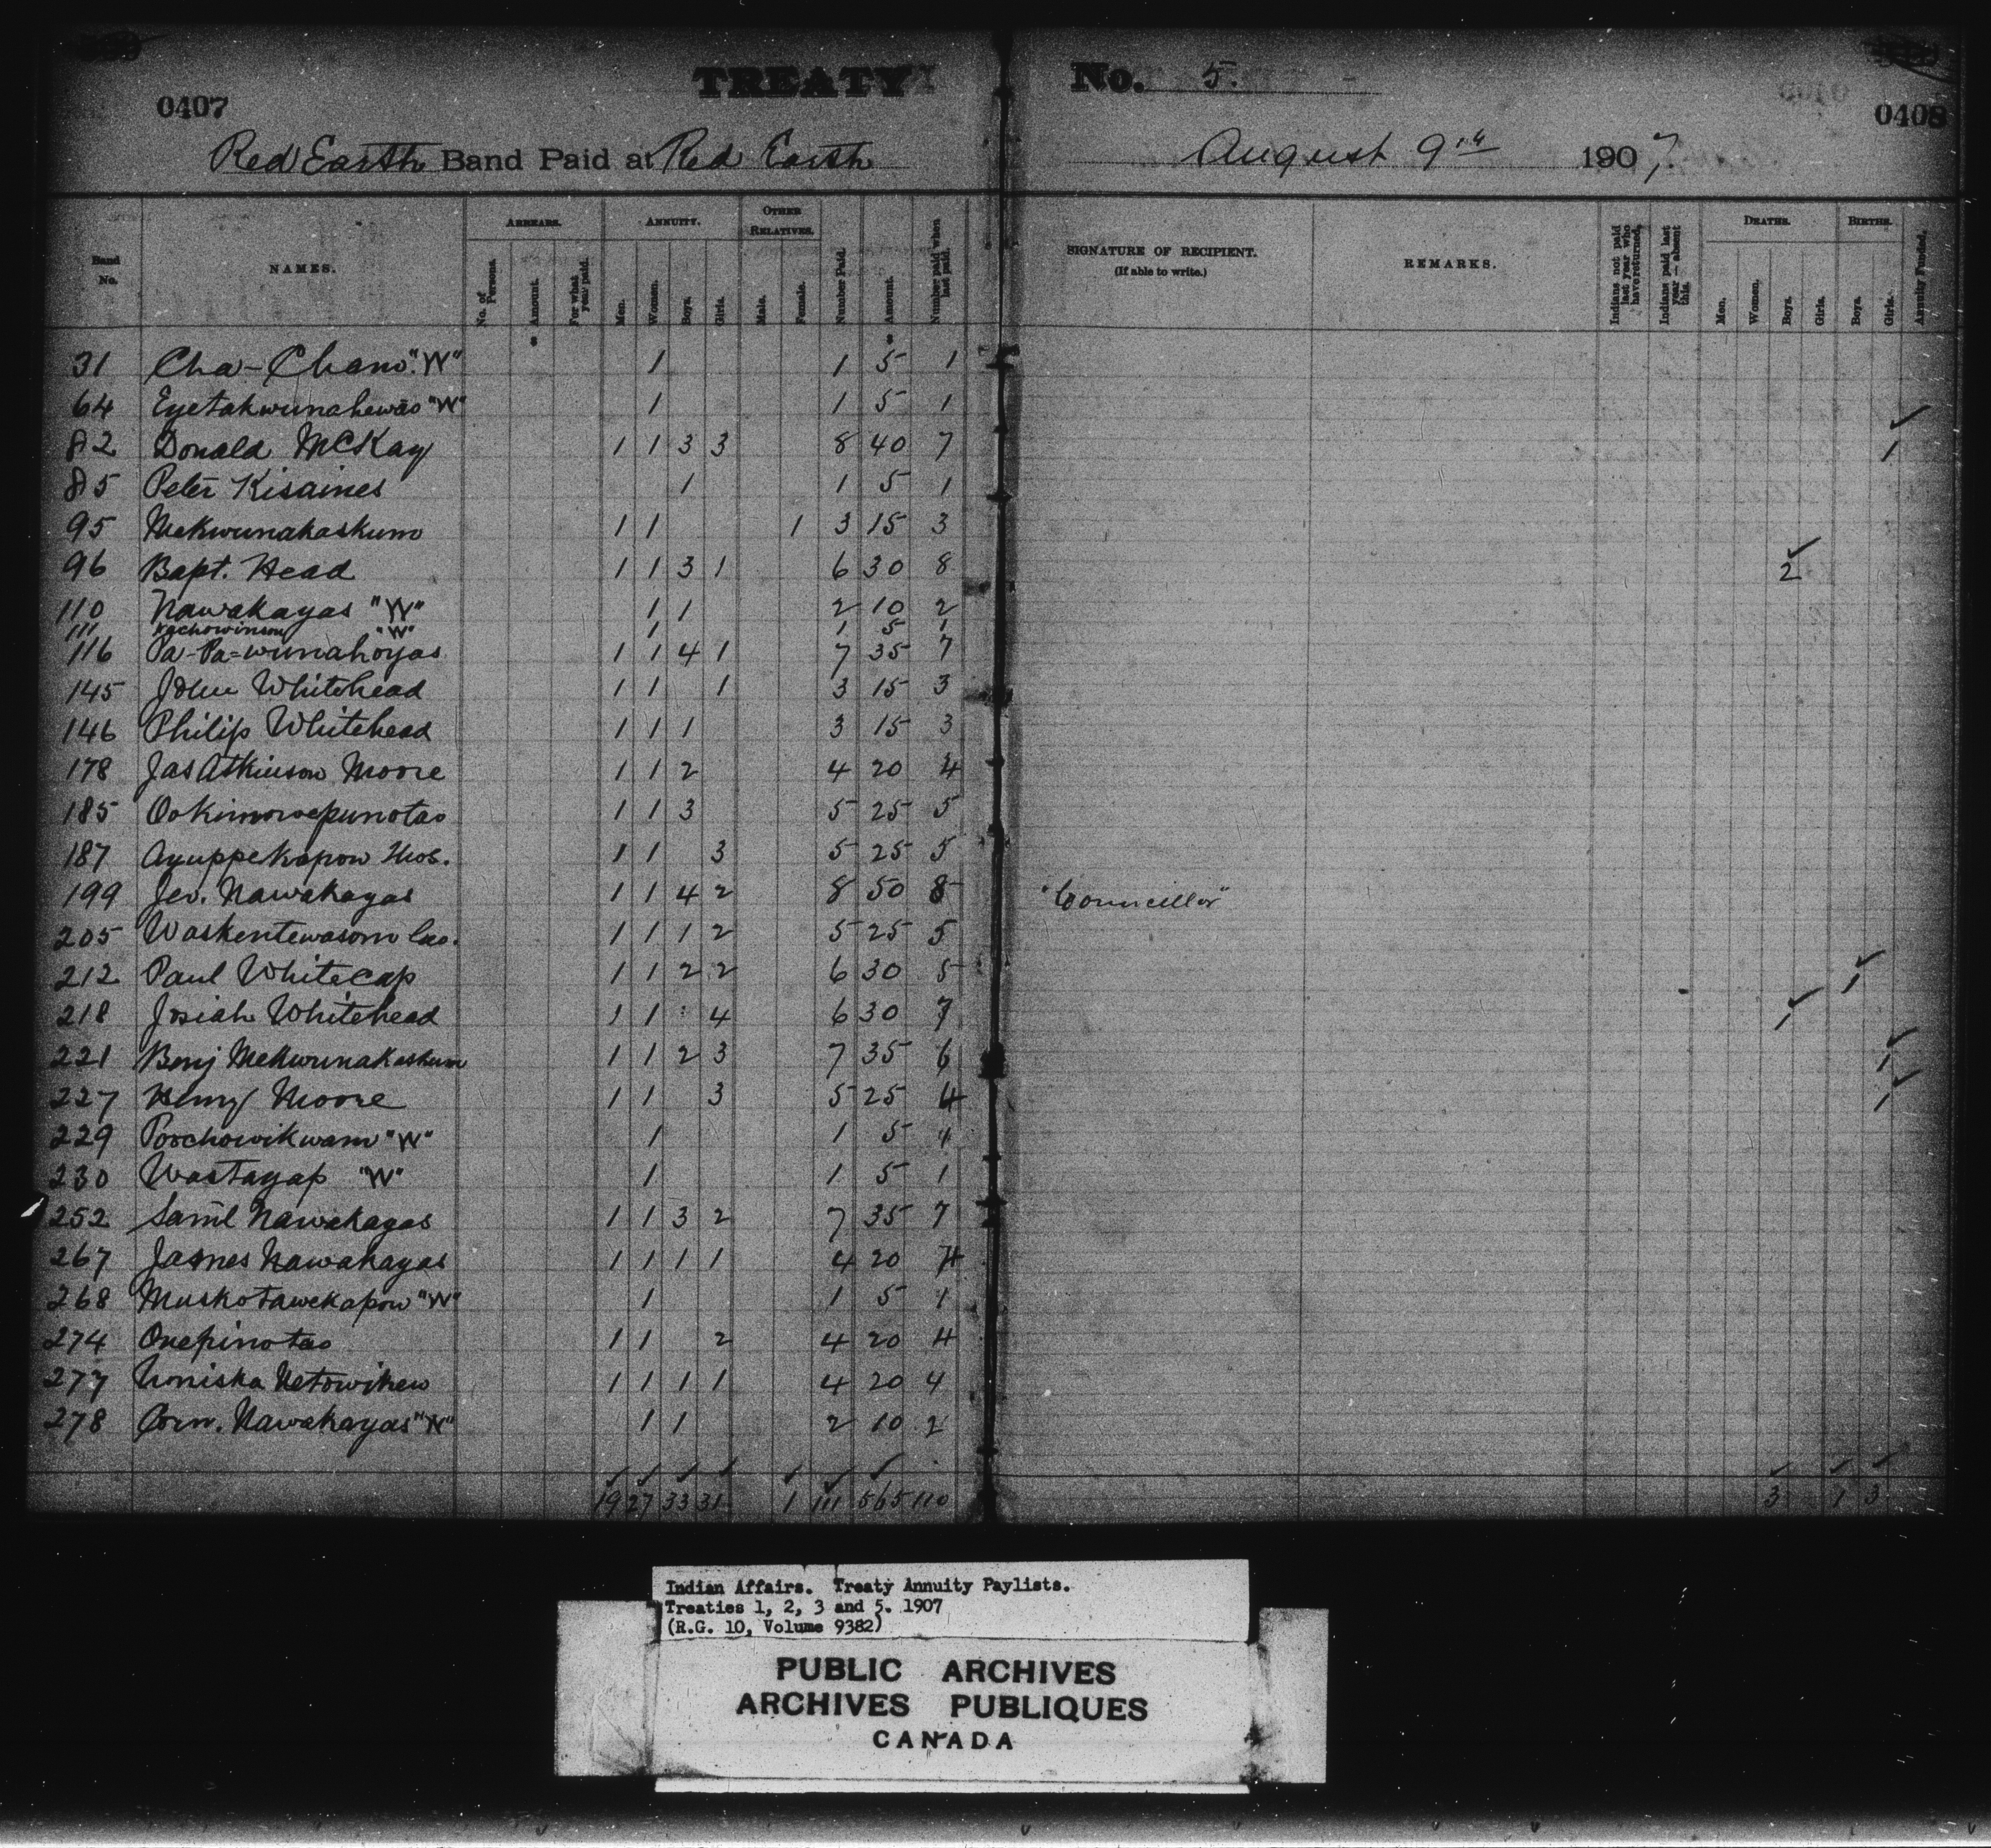 TREATY No. 5.
0407
0408
Red Earth Band Paid at Red Earth August 9th 1907.
Band No. NAMES. ARREARS. No. of Persons. Amount. For what year paid. ANNUITY. Men. Women. Boys. Girls. OTHER RELATIVES. Male. Female. Number Paid. Amount. Number paid when last paid. SIGNATURE OF RECIPIENT. (If able to write.) REMARKS. Indians not paid last year who have returned. Indians paid last year — absent this. DEATHS. Men. Women. Boys. Girls. BIRTHS. Boys. Girls. Annuity Funded.
31 Cha-Chano "W" 1 1 5 1
64 Eyetakwunahewao "W" 1 1 5 1
82 Donald McKay 1 1 3 3 8 40 7 1
85 Peter Kisaines 1 1 5 1
95 Mekwunakaskum 1 1 1 3 15 3
96 Bapt. Head 1 1 3 1 6 30 8 2
110 Nawakayas "W" 1 1 2 10 2
111 "W" 1 1 5 1
116 Pa-Pa-wunahoyas 1 1 4 1 7 35 7
145 John Whitehead 1 1 1 3 15 3
146 Philip Whitehead 1 1 1 3 15 3
178 Jas Atkinson Moore 1 1 2 4 20 4
185 Ookimowepunotao 1 1 3 5 25 5
187 Ayuppekapow Thos. 1 1 3 5 25 5
199 Jer. Nawakayas 1 1 4 2 8 50 8 "Councillor"
205 Waskentewasom Geo. 1 1 1 2 5 25 5
212 Paul Whitecap 1 1 2 2 6 30 5 1
218 Josiah Whitehead 1 1 4 6 30 7 1
221 Benj Mekwunakaskum 1 1 2 3 7 35 6 1
227 Henry Moore 1 1 3 5 25 4 1
229 Poochowikwam "W" 1 1 5 4
230 Wastayap "W" 1 1 5 1
252 Saml Nawakayas 1 1 3 2 7 35 7
267 James Nawakayas 1 1 1 1 4 20 4
268 Muskotawekapow "W" 1 1 5 1
274 Onepinotao 1 1 2 4 20 4
277 Noniska Netowikew 1 1 1 1 4 20 4
278 Corn. Nawakayas "W" 1 1 2 10 2
19 27 33 31 1 111 565 110 3 1 3
Indian Affairs. Treaty Annuity Paylists.
Treaties 1, 2, 3 and 5. 1907
(R.G. 10, Volume 9382)
PUBLIC ARCHIVES
ARCHIVES PUBLIQUES
CANADA